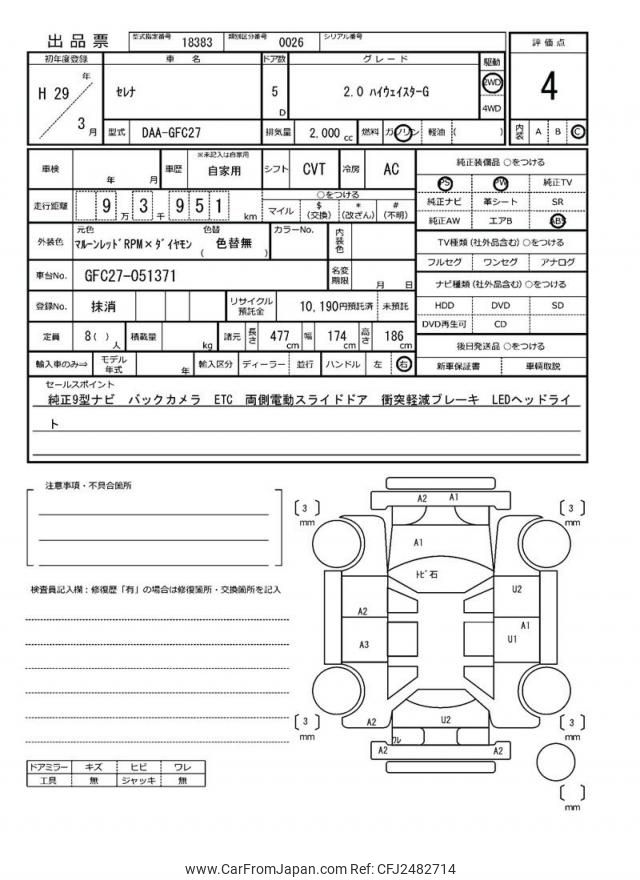 出品票 型式指定番号 18383 類別区分番号 0026 シリアル番号
初年度登録 車 名 ドア数 グレード 駆動 評価点
H 29 年 3 月 セレナ 5 D 2.0 ハイウェイスターG 2WD 4WD 4
型式 DAA-GFC27 排気量 2,000 cc 燃料 ガソリン 軽油 ( ) 内装 A B C
車検 年 月 車歴 ※未記入は自家用 自家用 シフト CVT 冷房 AC 純正装備品 ○をつける
PS PW 純正TV
走行距離 9 万 3 千 9 5 1 km ○をつける 純正ナビ 革シート SR
マイル $ (交換) * (改ざん) # (不明) 純正AW エアB ABS
外装色 元色 マルーンレッドRPM×ダイヤモン 色替 ( 色替無 ) カラーNo. 内装色 TV種類 (社外品含む) ○をつける
フルセグ ワンセグ アナログ
車台No. GFC27-051371 名変期限 月 日 ナビ種類 (社外品含む) ○をつける
登録No. 抹消 リサイクル預託金 10,190円預託済 未預託 HDD DVD SD
DVD再生可 CD
定員 8( ) 人 積載量 kg 諸元 長さ 477 cm 幅 174 cm 高さ 186 cm 後日発送品 ○をつける
輸入車のみ⇒ モデル年式 年 輸入区分 ディーラー 並行 ハンドル 左 右 新車保証書 車輌取説
セールスポイント
純正9型ナビ バックカメラ ETC 両側電動スライドドア 衝突軽減ブレーキ LEDヘッドライ
ト
注意事項・不具合箇所
検査員記入欄：修復歴「有」の場合は修復箇所・交換箇所を記入
A2 A1
[ 3 ] mm [ 3 ] mm
A1
トビ石
A2 U2
A1
A3 U1
A2 U2
[ 3 ] mm [ 3 ] mm
ワレ
A2 A2
[ ] mm
ドアミラー キズ ヒビ ワレ
工具 無 ジャッキ 無
www.CarFromJapan.com Ref: CFJ2482714